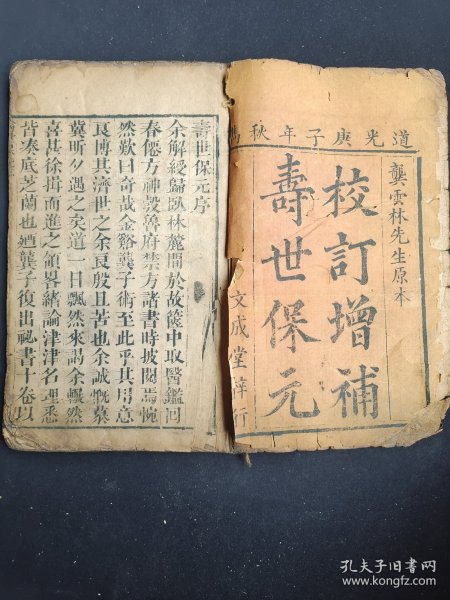 道光庚子年秋
龔雲林先生原本
校訂增補
壽世保元
文成堂梓行
壽世保元序
余解綬歸臥林麓間於故篋中取醫鑑回
春僊方神彀魯府禁方諸書時披閱焉惋
然歎曰奇哉金谿龔子術至此乎其用意
良博其濟世之余良殷且苦也余誠慨慕
冀昕夕遇之矣道一日飄然來謁余輾然
喜甚徐揖而進之領畧緒論津津名理悉
皆奏底芝蘭也廼龔子復出祕書十卷以
孔夫子旧书网
www.kongfz.com